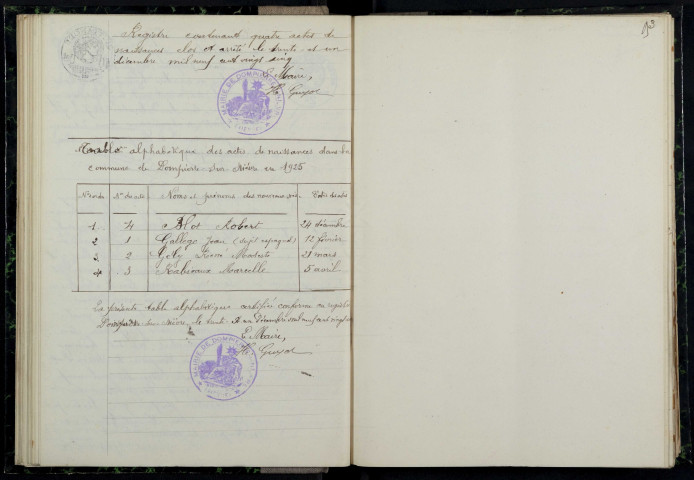 Registre contenant quatre actes de
naissances clos et arrêté le trente et un
décembre mil neuf cent vingt cinq
Le Maire,
Guyot
MAIRIE DE DOMPIERRE
Table alphabétique des actes de naissances dans la
commune de Dompierre sur Nièvre en 1925
Nos d'ordre Nos des actes Noms et prénoms des nouveaux-nés Dates des actes
1 4 Blot Robert 24 décembre
2 1 Gallego Jean (sujet espagnol) 12 février
3 2 Joly René Modeste 21 mars
4 3 Rabereau Marcelle 5 avril
La présente table alphabétique certifiée conforme au registre
Dompierre sur Nièvre, le trente et un décembre mil neuf cent vingt cinq
Le Maire,
Guyot
MAIRIE DE DOMPIERRE